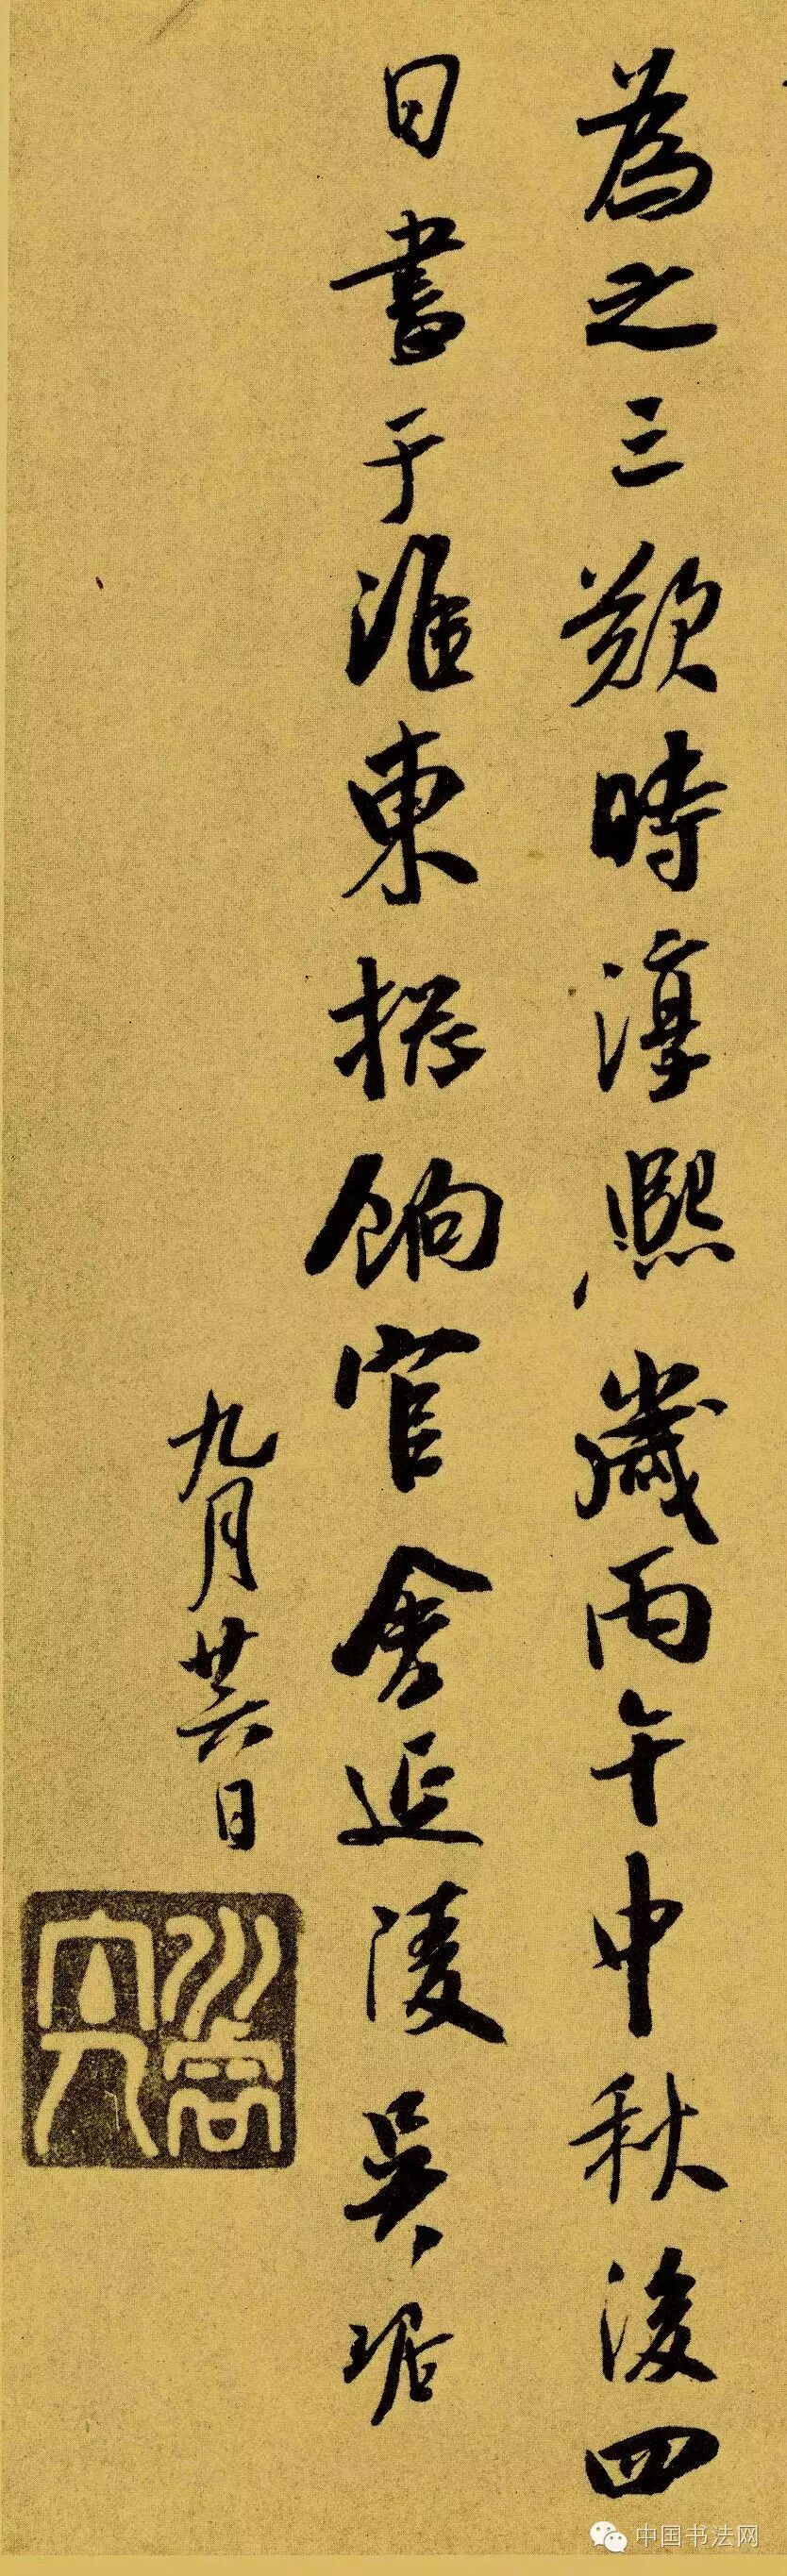 為之三歎時淳熙歲丙午中秋後四
日書于淮東揔餉官舍延陵吳琚
九月廿六日
中国书法网